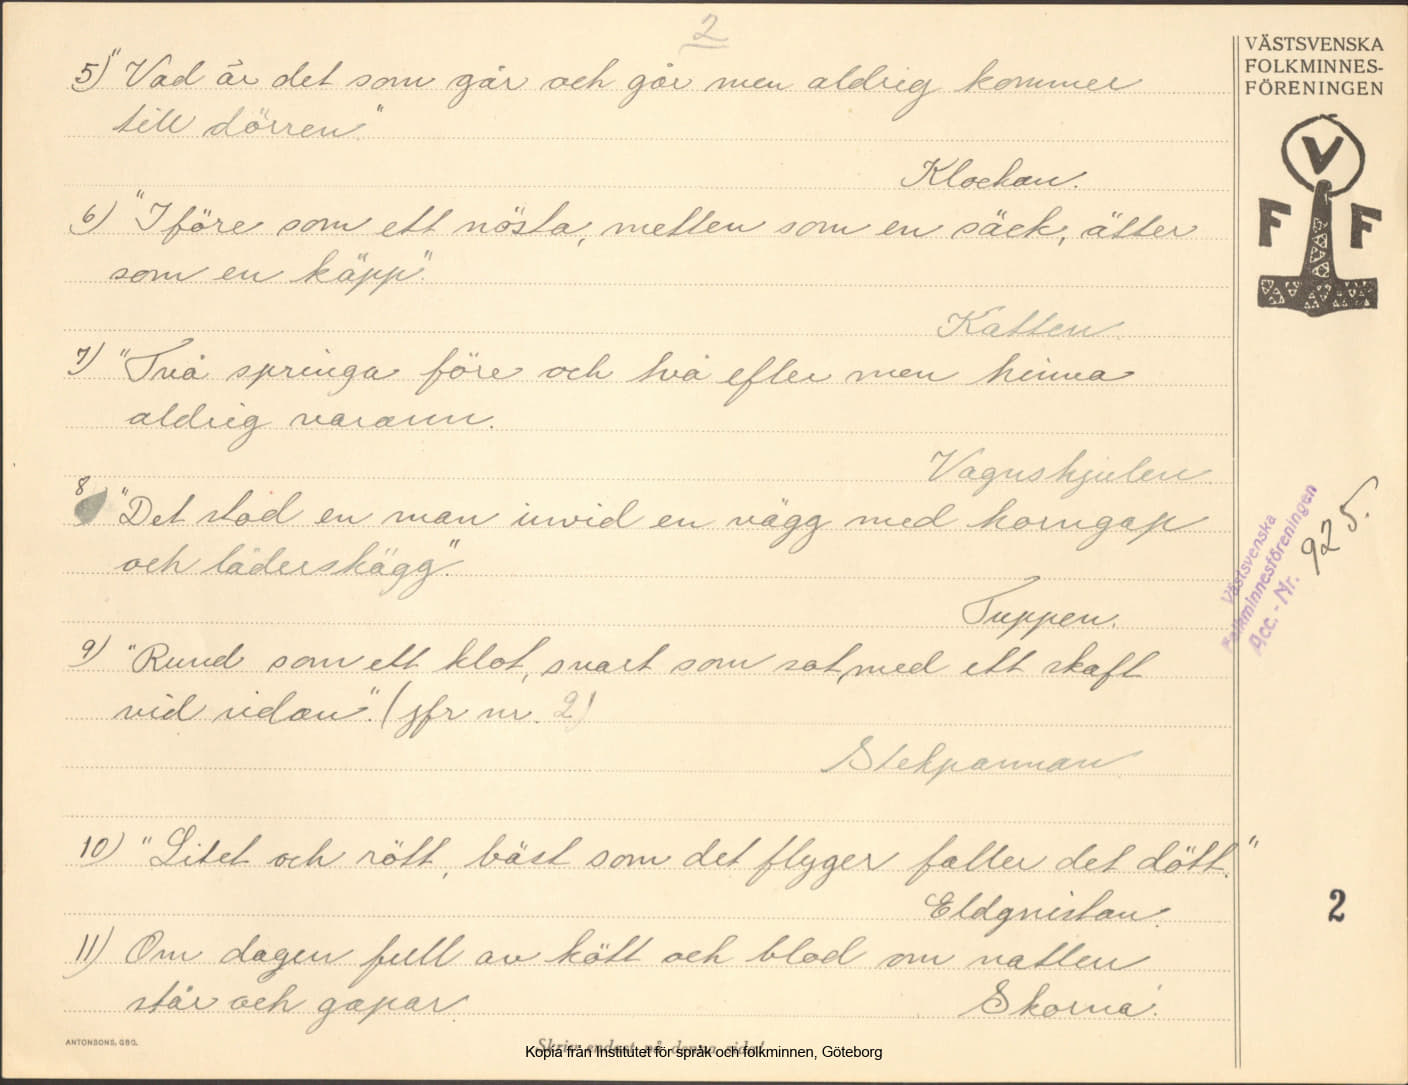 2
5) "Vad är det som går och går men aldrig kommer
till dörren"
Klockan.
6) "I före som ett nösta, metten som en säck, ätter
som en käpp".
Katten.
7) "Två springa före och två efter men hinna
aldrig varann.
Vagnshjulen.
8 "Det stod en man invid en vägg med horngap
och läderskägg".
Tuppen.
9) "Rund som ett klot, svart som sot, med ett skaft
vid sidan". (jfr nr. 2)
Stekpannan.
10) "Litet och rött, bäst som det flyger faller det dött."
Eldgnistan.
11) Om dagen full av kött och blod om natten
står och gapar.
Skorna.
VÄSTSVENSKA
FOLKMINNES-
FÖRENINGEN
V
F F
Västsvenska
Folkminnesföreningen
Acc.-Nr. 925.
2
ANTONSONS, GBG.
Skriv endast på denna sida!
Kopia från Institutet för språk och folkminnen, Göteborg